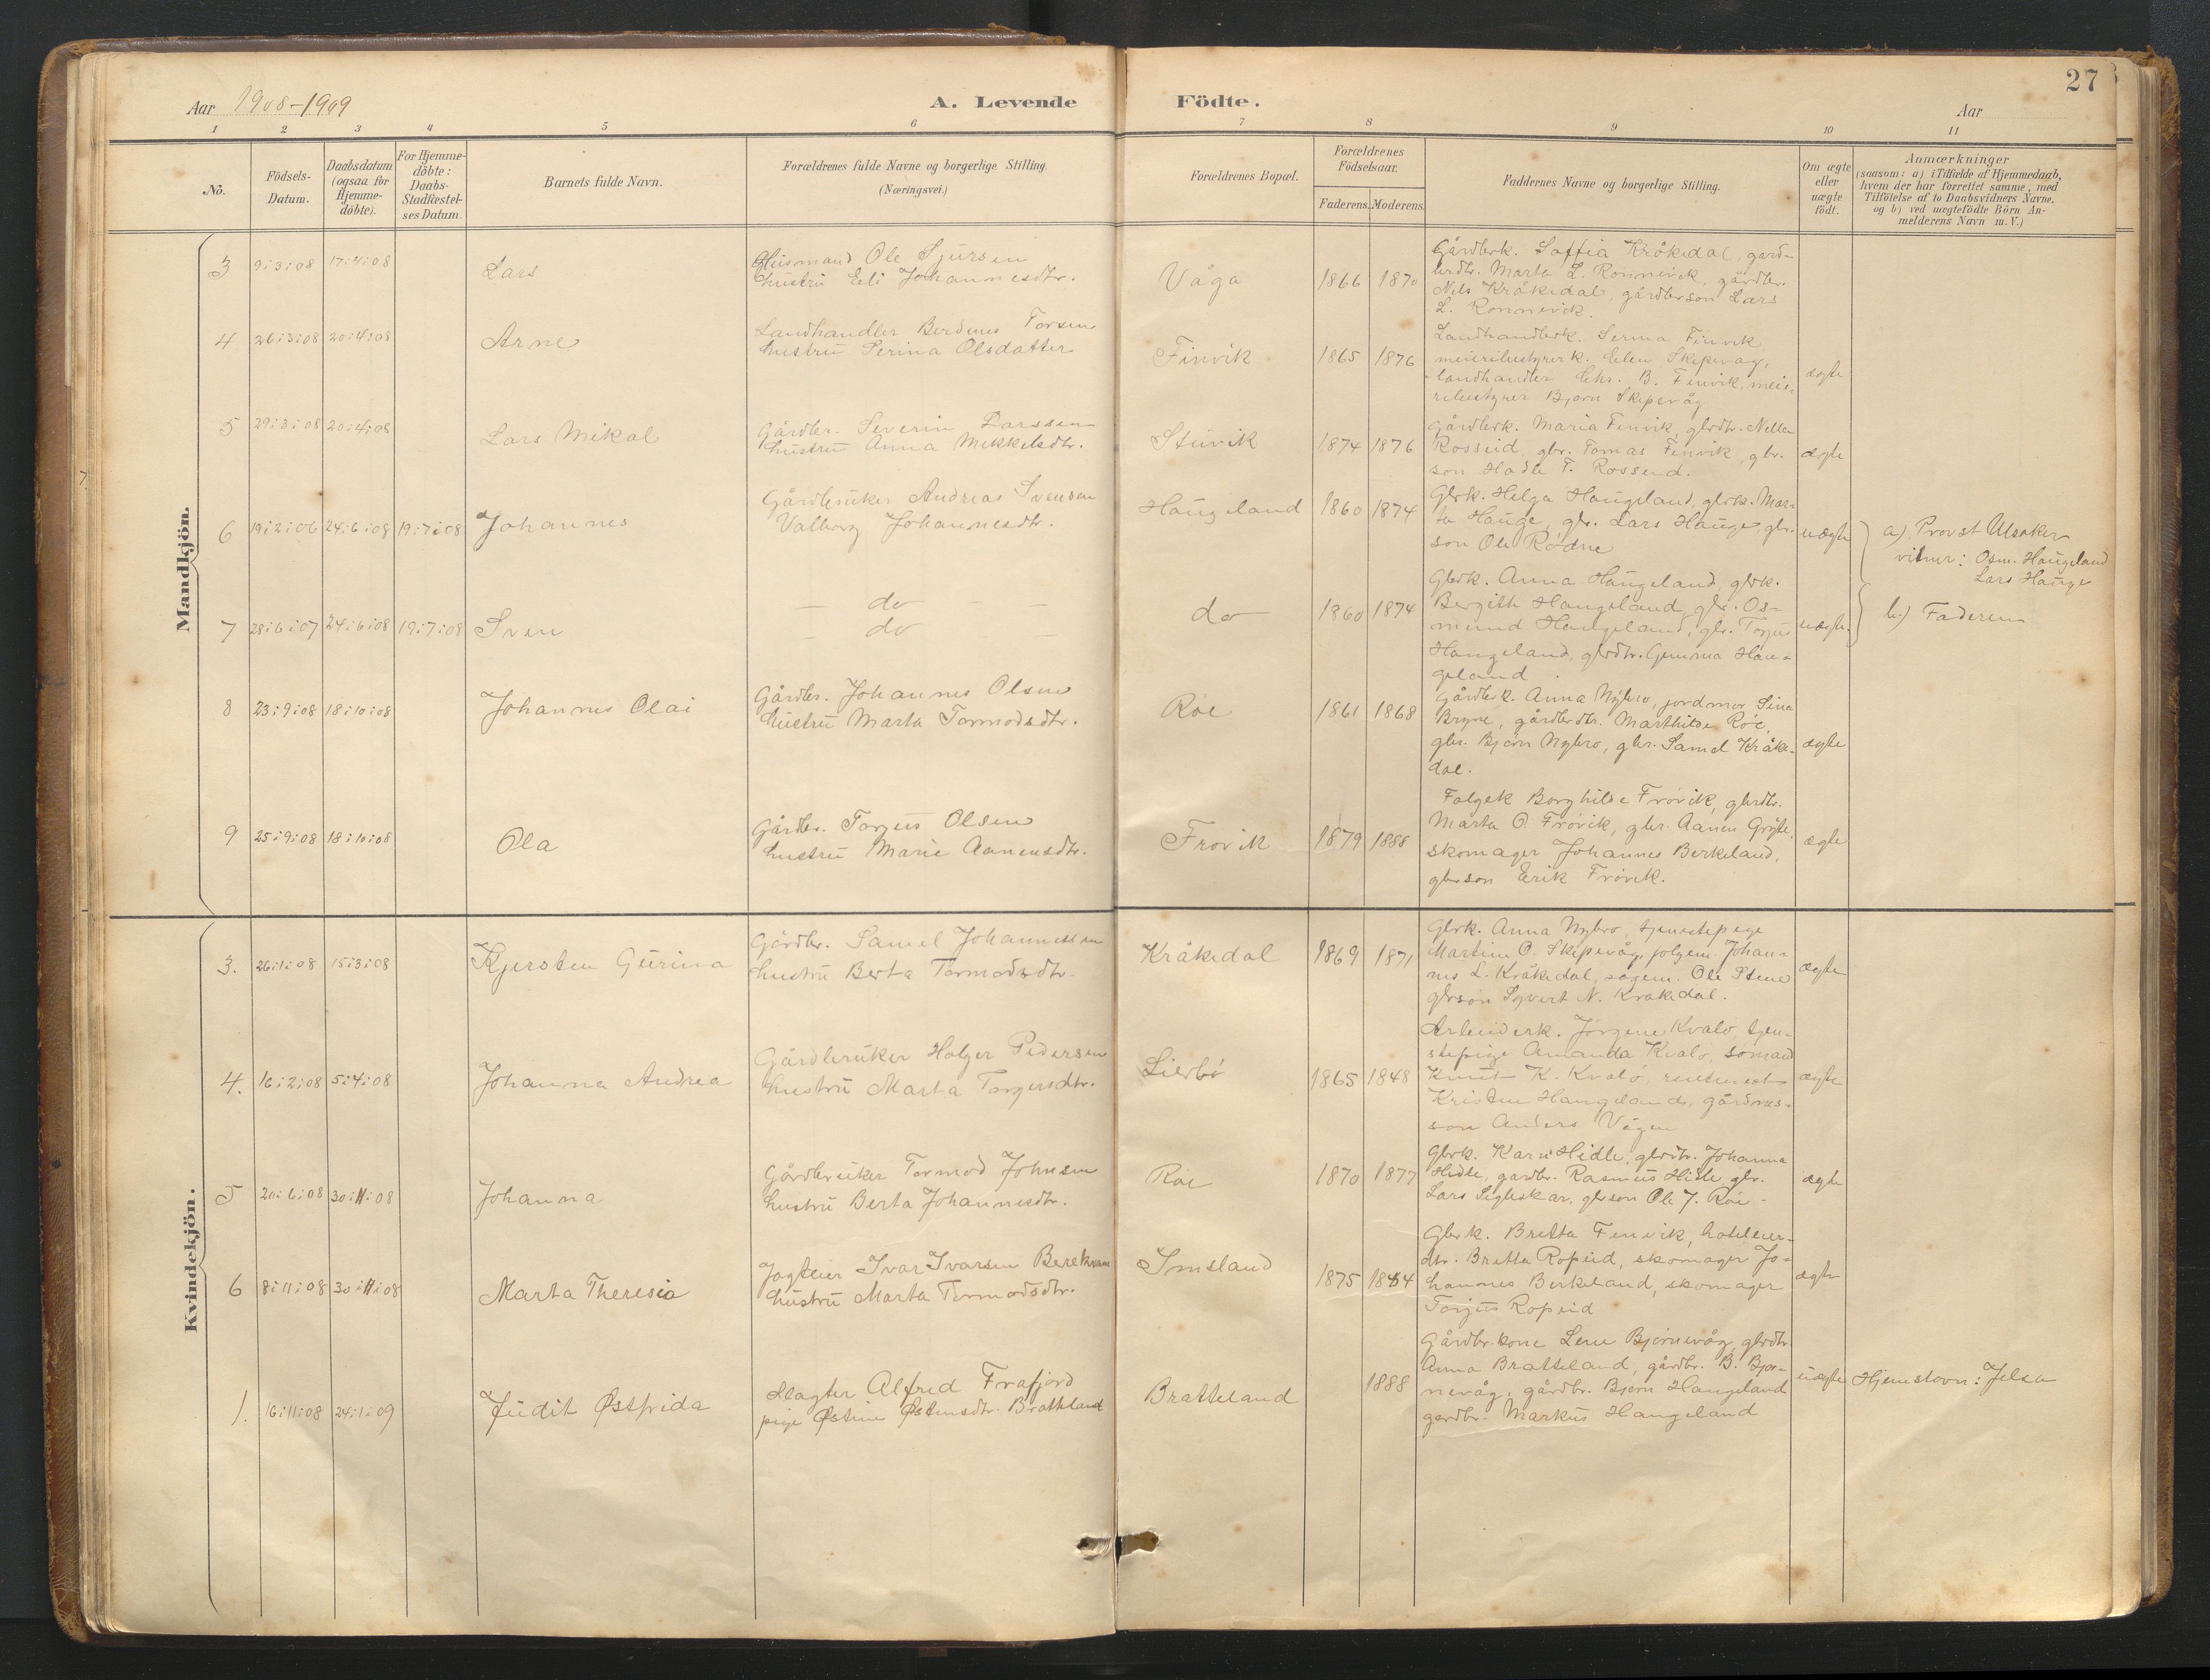 27
Aar 1908-1909
A. Levende Födte.
Aar
1 2 3 4 5 6 7 8 9 10 11
No.
Födsels-Datum.
Daabsdatum (ogsaa for Hjemme-döbte).
For Hjemme-döbte: Daabs-Stadfæstel-ses Datum.
Barnets fulde Navn.
Forældrenes fulde Navne og borgerlige Stilling.
(Næringsvei.)
Forældrenes Bopæl.
Forældrenes Födselsaar.
Faderens. Moderens.
Faddernes Navne og borgerlige Stilling.
Om ægte eller uægte födt.
Anmærkninger
(saasom: a) i Tilfælde af Hjemmedaab,
hvem der har forrettet samme, med
Tilföielse af to Daabsvidners Navne,
og b) ved uægtefödte Börn An-
melderens Navn m. V.)
Mandkjön.
3 9:3:08 17:4:08 Lars
Husmand Ole Sjursen
hustru Eli Johannesdtr.
Våga 1866 1870
Gårdbrk. Saffia Kråkedal, gard-
brdtr. Marta L. Rønnevik, gårdbr.
Nels Kråkedal, gårdbrson Lars
L. Rønnevik.
4 26:3:08 20:4:08 Arne
Landhandler Torsen
hustru Serina Olsdatter
Finvik 1865 1876
Landhandlerk. Serina Finvik
meieribestyrerk. Elen Skipevåg,
landhandler Chr. B. Finvik, meie-
ribestyrer Bjørn Skipevåg
ægte
5 29:3:08 20:4:08 Lars Mikal
Gårdbr. Severin Larssen
hustru Anna Mikkelsdtr.
Stuvik 1874 1876
Gårdbrk. Maria Finvik, gbrdtr. Nella
Rosseid, gbr. Tomas Finvik, gbr.
son Hadle T. Rosseid.
ægte
6 19:2:06 24:6:08 19:7:08 Johannes
Gårdbruker Andreas Svensen
Valborg Johannesdtr.
Haugeland 1860 1874
Gbrk. Helga Haugeland, gbrk. Mar-
ta Hauge, gbr. Lars Hauge, gbr.
son Ole Rødne
uægte
a) Provst Alsaker
vitner: Osm. Haugeland
Lars Hauge
7 28:6:07 24:6:08 19:7:08 Sven
— do — —
— do —
do 1860 1874
Gbrk. Anna Haugeland, gbrk.
Bergith Haugeland, gbr. Os-
mund Haugeland, gbr. Torjus
Haugeland, gbrdtr. Gunna Hau-
geland.
uægte.
b.) Faderen
8 23:9:08 18:10:08 Johannes Olai
Gårdbr. Johannes Olsen
hustru Marta Tormodsdtr.
Røe 1861 1868
Gårdbrk. Anna Nybro, jordmor Sina
Bryne, gårdbrdtr. Marthilde Røe,
gbr. Bjørn Nybro, gbr. Samel Kråke-
dal.
ægte
9 25:9:08 18:10:08 Ola
Gårdbr. Torjus Olsen
hustru Marie Aanensdtr.
Frøvik 1879 1888
Folgek Borghilde Frøvik, gbrdtr.
Marta O. Frøvik, gbr. Aanen Gryte,
skomager Johannes Berkeland,
gbrson Erik Frøvik.
ægte
Kvindekjön.
3. 26:1:08 15:3:08 Kjersten Gurina
Gårdbr. Samel Johannessen
hustru Berta Tormodsdtr.
Kråkedal 1869 1871
Gbrk. Anna Nybro, tjenestepige
Martine O. Skipevåg, folgem. Johan-
nes L. Kråkedal, sagem. Ole Stene
gbrson Syvert N. Kråkedal.
ægte
4. 16:2:08 5:4:08 Johanna Andrea
Gårdbruker Holger Pedersen
hustru Marta Torgersdtr.
Lierbø 1865 1848
Arbeiderk. Jørgine Kvalø tjen-
stepige Amanda Kvalø, sømand
Knut K. Kvalø,
Kristen Haugeland, gårdmes-
son Anders Vågen
ægte
5 20:6:08 30:11:08 Johanna
Gårdbruker Tormod Johnsen
hustru Berta Johannesdtr.
Røe 1870 1877
Gbrk. Kari Hidle, gbrdtr. Johanna
Hidle, gårdbr. Rasmus Hidle, gbr.
Lars Segleskar, gbrson Ole J. Røe.
ægte
6 8:11:08 30:11:08 Marta Theresia
Jagteier Ivar Ivarsen Berekvam
hustru Marta Tormodsdtr.
Imsland 1875 1884
Gbrk. Britta Finvik, hoteleier-
dtr. Britta Ropeid, skomager Jo-
hannes Berkeland, skomager
Torjus Ropeid
ægte
1. 16:11:08 24:1:09 Judit Østfrida
Slagter Alfred Frafjord
pige Østine Østensdtr. Bratteland
Bratteland 1888
Gårdbr. kone Lene Bjørnevåg, gbrdtr
Anna Bratteland, gårdbr. B. Bjør-
nevåg, gårdbr. Bjørn Haugeland
gardbr. Markus Haugeland
uægte
Hjemstavn: Jelsa